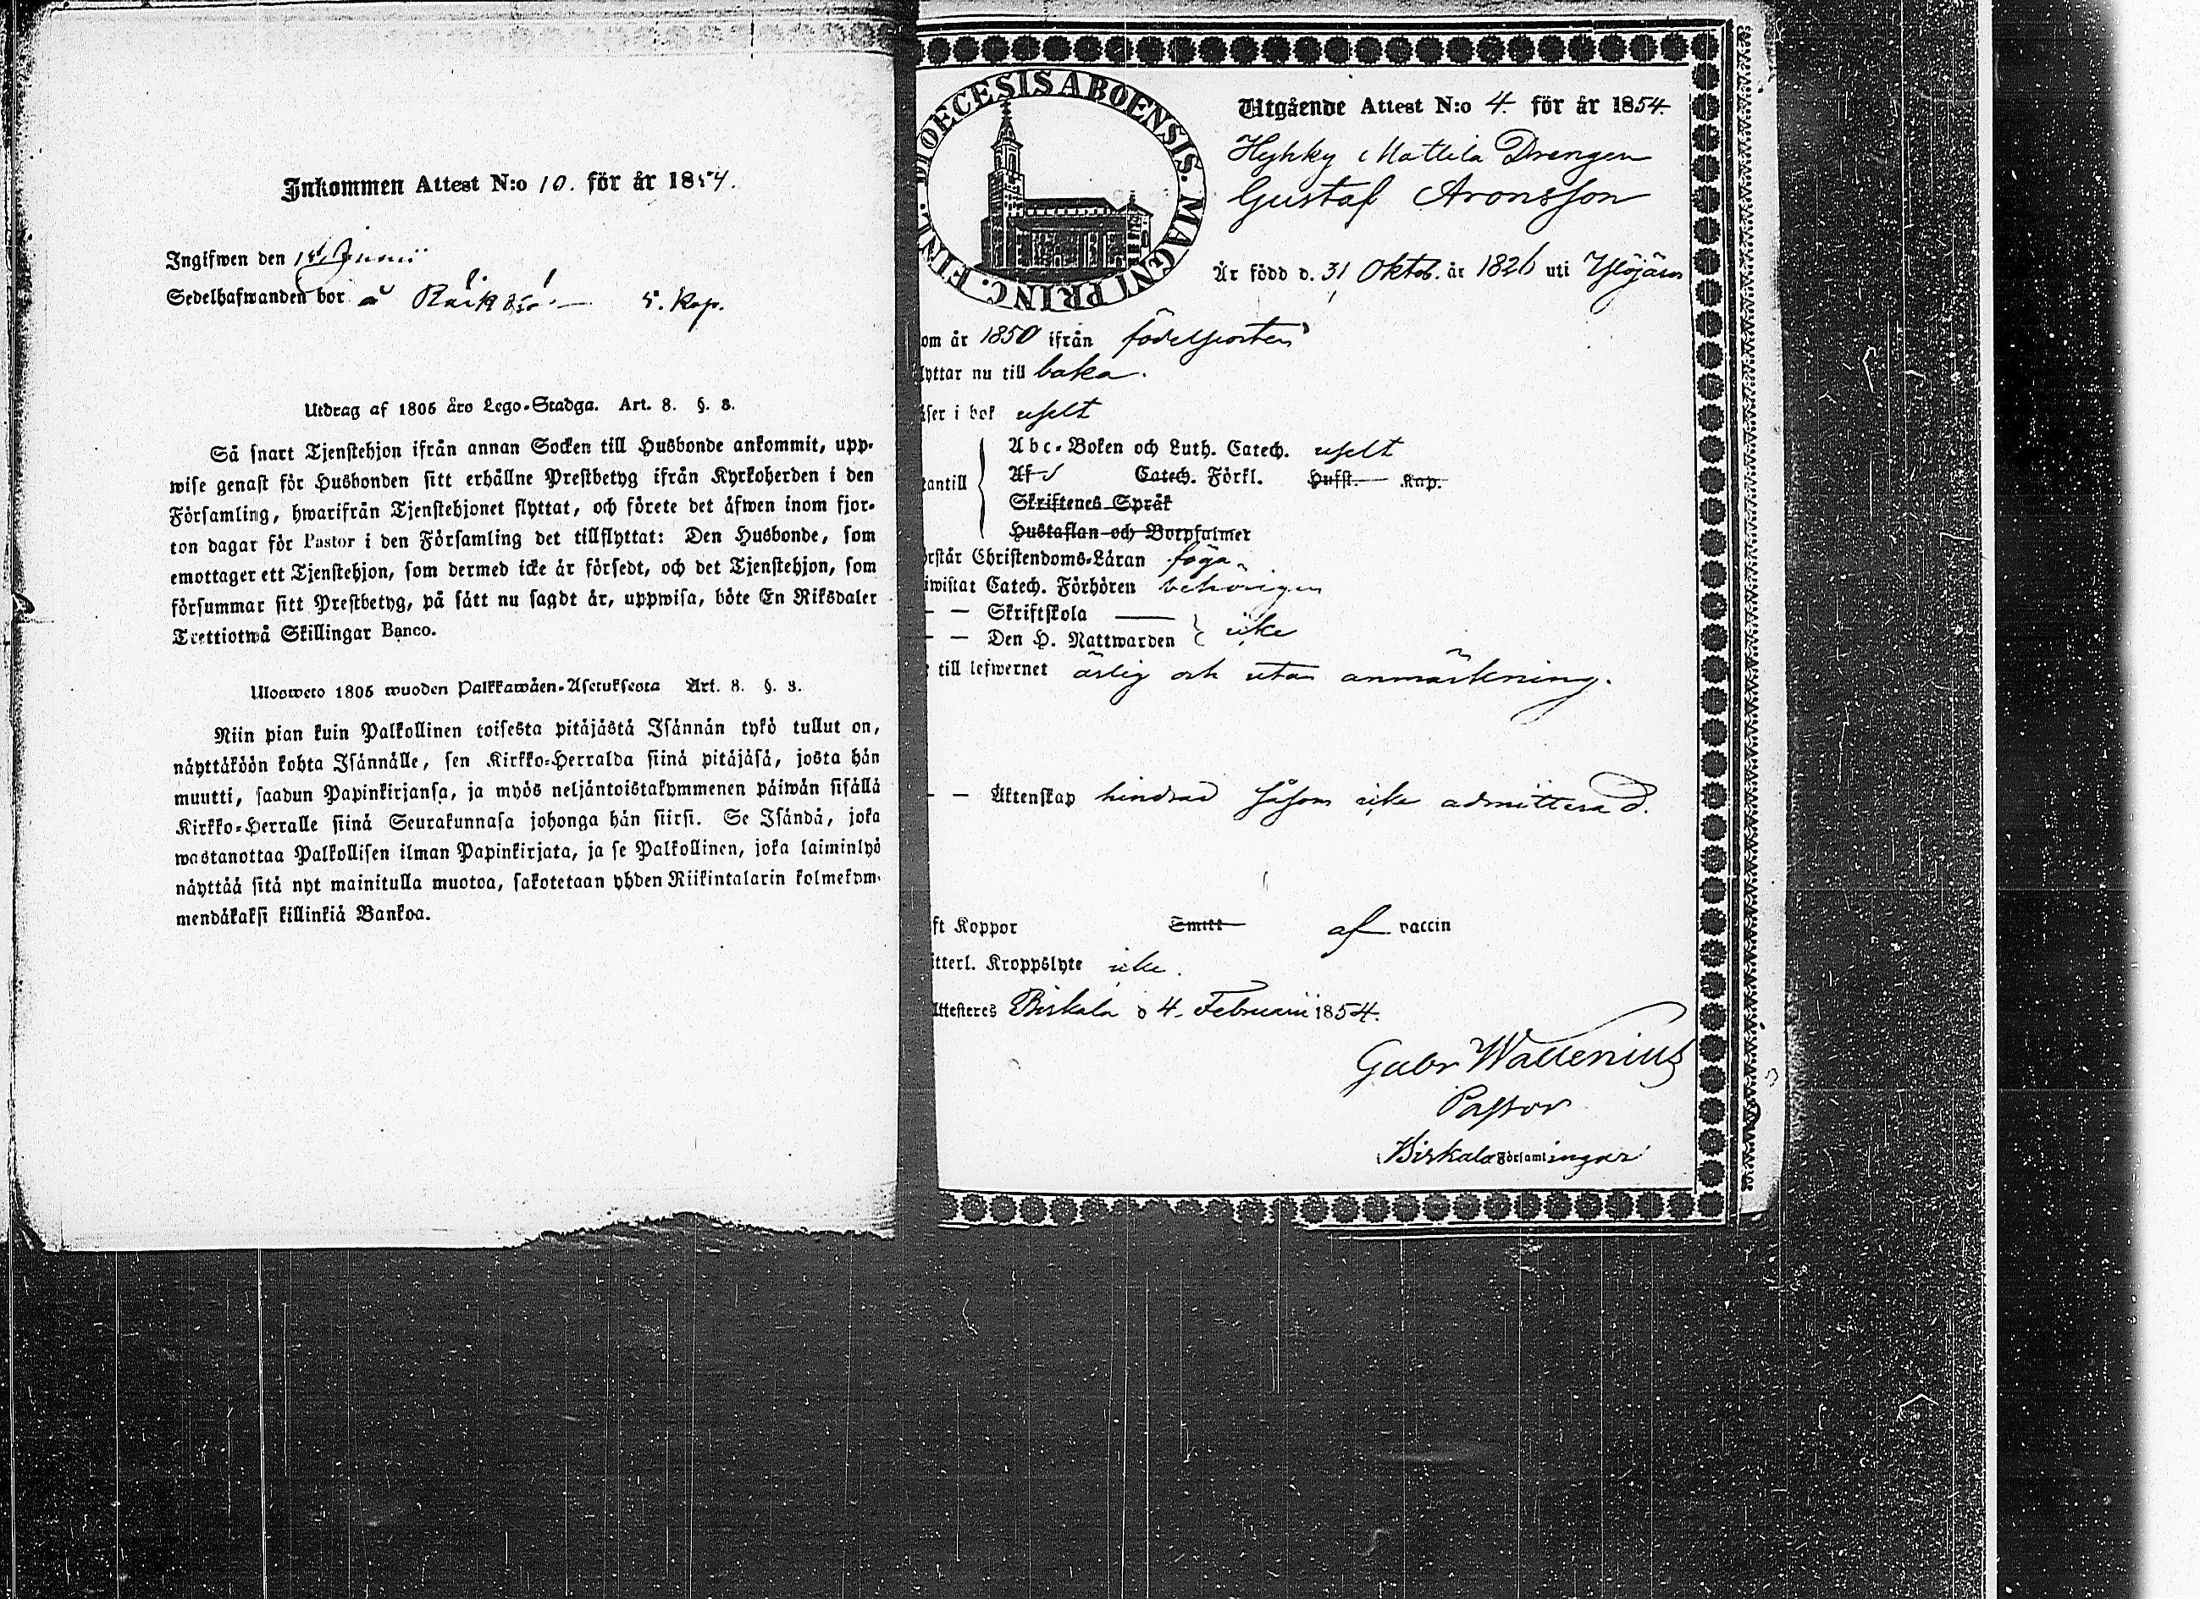 Inkommen Attest N:o 10. för år 1854.
Ingifwen den Junii
Sedelhafwanden bor å 5. Kop.
Utdrag af 1805 års Lego-Stadga. Art. 8. §. 3.
Så snart Tjenstehjon ifrån annan Socken till Husbonde ankommit, upp-
wise genast för Husbonden sitt erhållne Prestbetyg ifrån Kyrkoherden i den
Församling, hwarifrån Tjenstehjonet flyttat, och förete det äfwen inom fjor-
ton dagar för Pastor i den Församling det tillflyttat: Den Husbonde, som
emottager ett Tjenstehjon, som dermed icke är försedt, och det Tjenstehjon, som
försummar sitt Prestbetyg, på sätt nu sagdt är, uppwisa, böte En Riksdaler
Trettiotwå Skillingar Banco.
Ulosweto 1805 wuoden Palkkawäen-Asetuksesta Art. 8. §. 3.
Niin pian kuin Palkollinen toisesta pitäjästä Isännän tykö tullut on,
näyttäköön kohta Isännälle, sen Kirkko-Herralda siinä pitäjäsä, josta hän
muutti, saadun Papinkirjansa, ja myös neljäntoistakymmenen päiwän sisällä
Kirkko-Herralle siinä Seurakunnasa johonga hän siirsi. Se Isändä, joka
wastanottaa Palkollisen ilman Papinkirjata, ja se Palkollinen, joka laiminlyö
näyttää sitä nyt mainitulla muotoa, sakotetaan yhden Riikintalarin kolmekym-
mendäkaksi killinkiä Bankoa.
DIOECESIS ABOENSIS. MAGNI PRINC. FINL.
Utgående Attest N:o 4. för år 1854.
Hyhky Mattila Drengen
Gustaf Aronsson
År född d. 31 Oktob. år 1826 uti Ylöjärvi
om år 1850 ifrån födelseorten
lyttar nu till baka.
äser i bok uselt
Abc-Boken och Luth. Catech. uselt
antill Af Catech. Förkl. Hufst. Kap.
Skriftenes Språk
Hustaflan och Botpsalmer
rstår Christendoms-Läran föga
iwistat Catech. Förhören behörigen
— — Skriftskola
— — Den H. Nattwarden icke
till lefwernet ärlig och utan anmärkning.
— — Äktenskap hindrad såsom icke admitterad.
ft Koppor Smitt af vaccin
itterl. Kroppslyte icke.
ttesteres Birkala d 4. Februarii 1854.
Gabr Wallenius
Pastor
i Birkala Församlingar